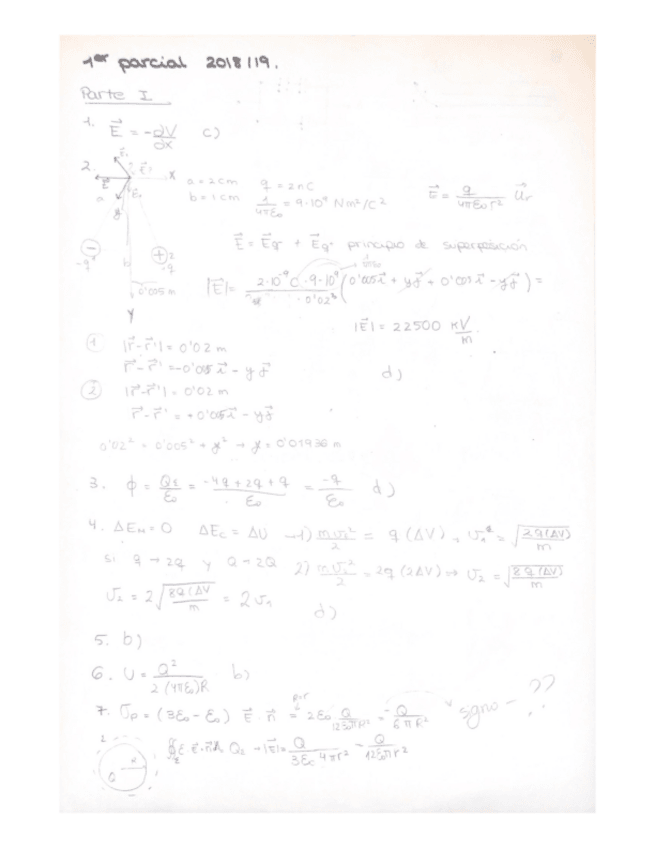 1er parcial 2018/19.
Parte I
1. E⃗ = -∂V/∂x c)
2. E⃗ x a = 2cm q = 2nC E⃗ = q/4πε₀r² u⃗r
a b = 1cm 1/4πε₀ = 9·10⁹ Nm²/C²
E⃗ = E⃗q- + E⃗q+ principio de superposición
-q +q b 0'005 m y
|E⃗| = 2·10⁻⁹C·9·10⁹/0'02³ (0'005i⃗ + yj⃗ + 0'005i⃗ - yj⃗) =
|E⃗| = 22500 KV/m
① |r⃗-r⃗'| = 0'02 m
r⃗-r⃗' = -0'005i⃗ - yj⃗ d)
② |r⃗-r⃗'| = 0'02 m
r⃗-r⃗' = +0'005i⃗ - yj⃗
0'02² = 0'005² + y² → y = 0'01936 m
3. ϕ = Q/ε₀ = -4q+2q+q/ε₀ = -q/ε₀ d)
4. ΔEM = 0 ΔEc = ΔU → 1) mv₁²/2 = q(ΔV), v₁ = √2q(ΔV)/m
si q → 2q y Q → 2Q 2) mv₂²/2 = 2q(2ΔV) ⇒ v₂ = √8q(ΔV)/m
v₂ = 2√8q(ΔV/m = 2v₁ d)
5. b)
6. U = Q²/2(4πε₀)R b)
7. σp = (3ε₀ - ε₀) E⃗·n⃗ = 2ε₀ Q/12ε₀πR² = -Q/6πR² signo - ??
Q R
|E⃗| = Q/3ε₀4πr² = Q/12ε₀πr²